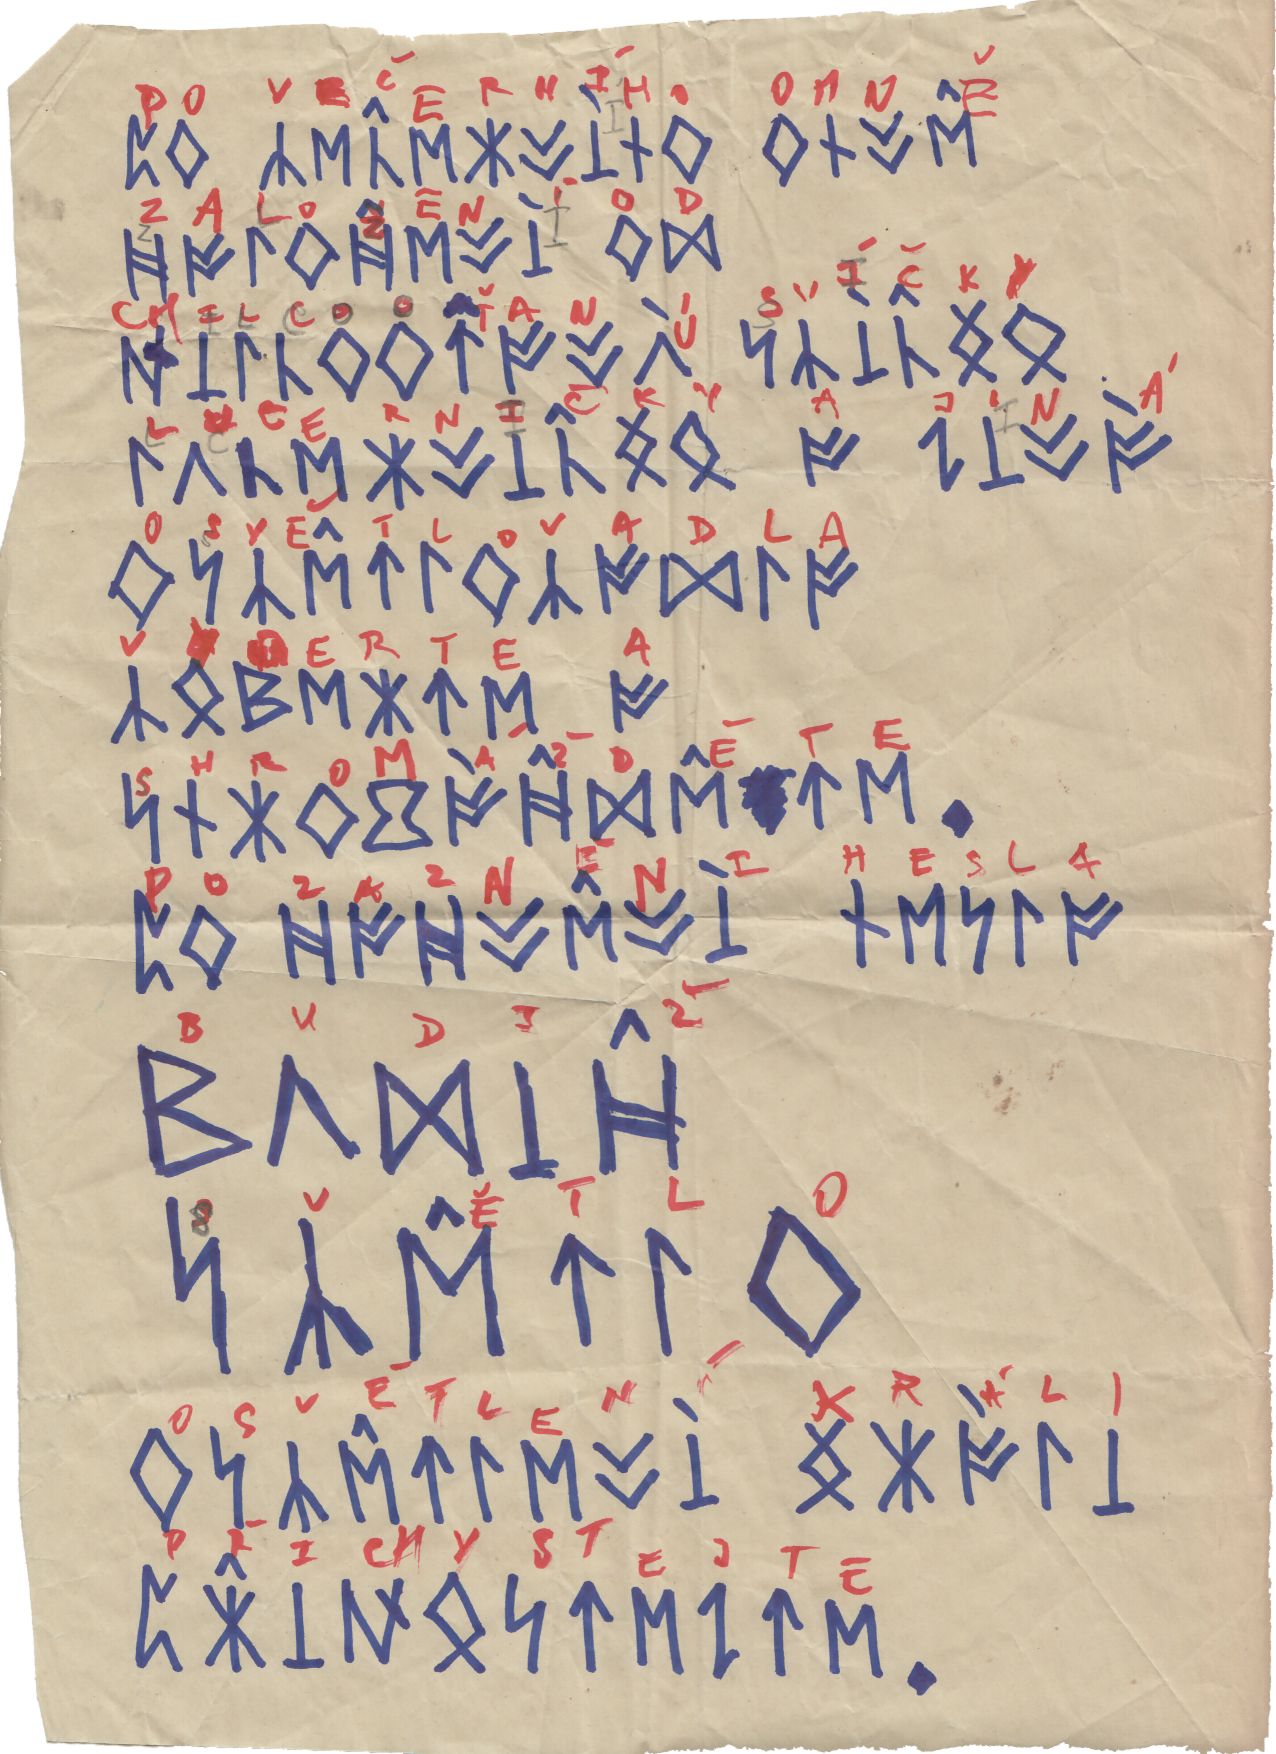 PO VEČERNÍHO OHNĚ
ZALOŽENÍ OD
CHILCOOŤANÚ SVÍČKY
LUCERNIČKY A JINÁ
OSVĚTLOVADLA
VYBERTE A
SHROMÁŽDĚTE.
PO ZAZNĚNÍ HESLA
BUDIŽ
SVĚTLO
OSVĚTLENÍ KRÁLI
PŘICHYSTEJTE.